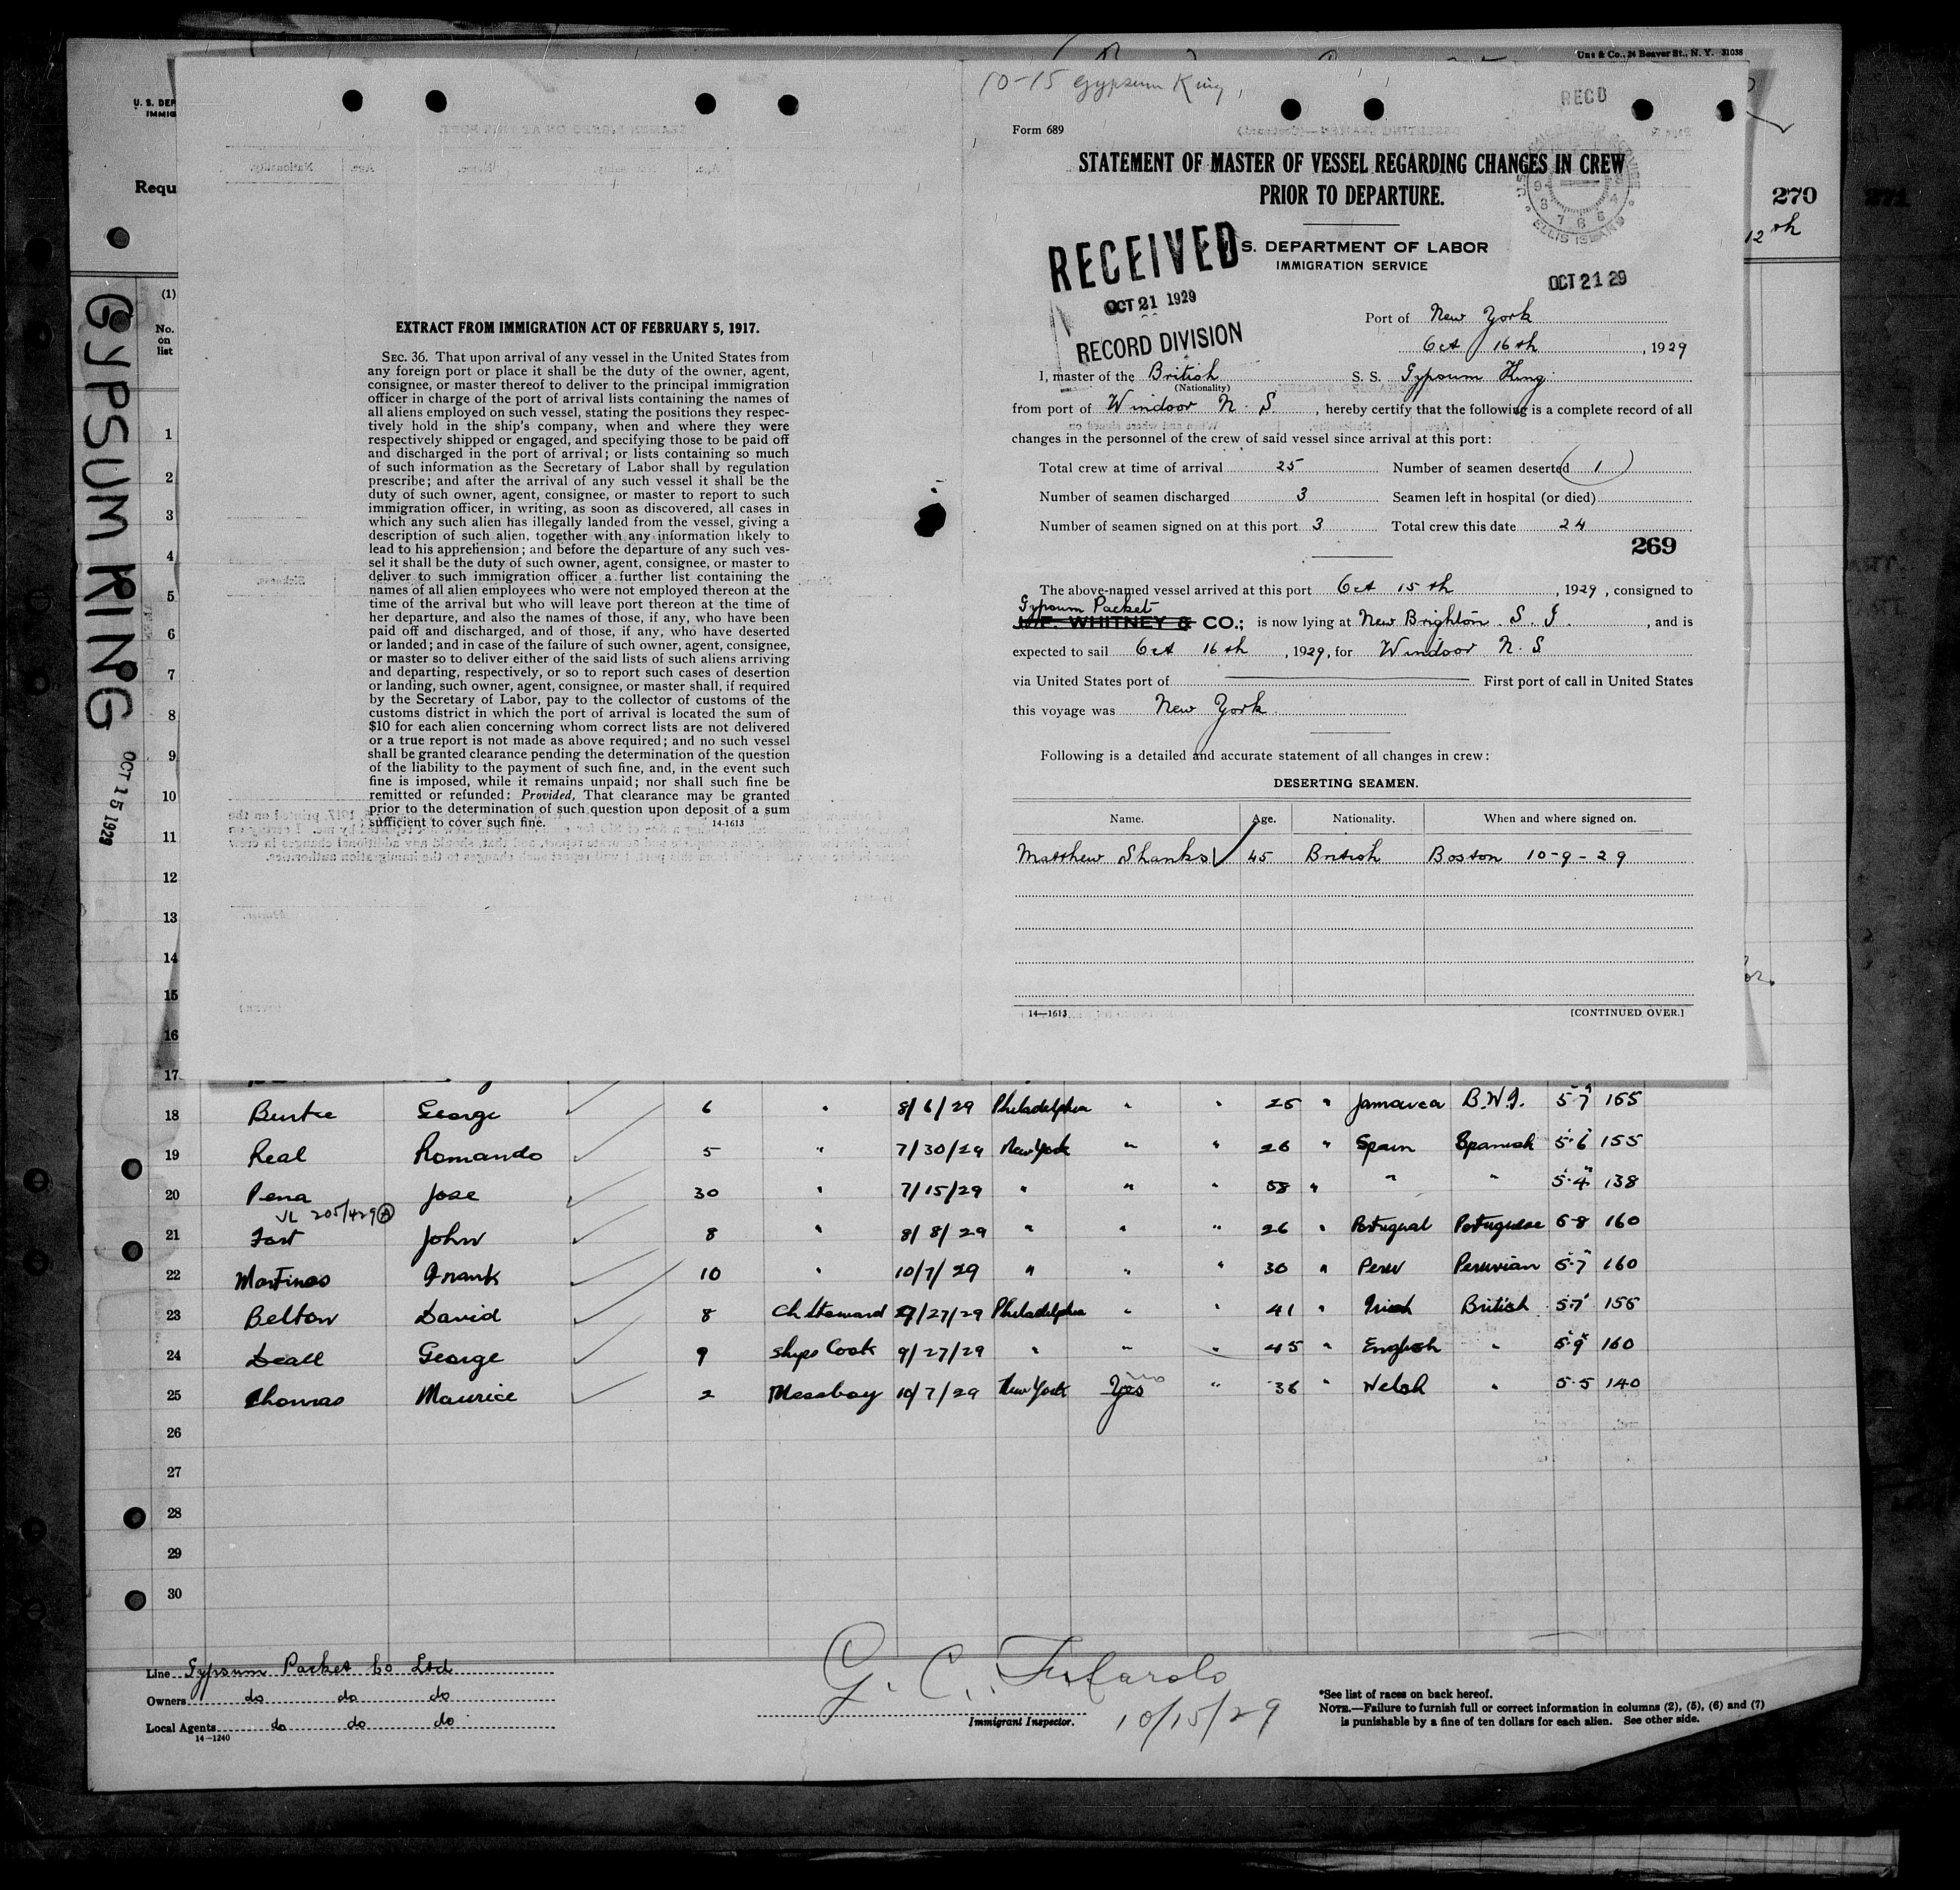 Uns & Co., 24 Beaver St., N. Y. 31038
U. S. DEP
IMMIG
Requ
270
12th
271
GYPSUM KING
OCT 15 1929
(1)
No.
on
list
1
2
3
4
5
6
7
8
9
10
11
12
13
14
15
16
17
EXTRACT FROM IMMIGRATION ACT OF FEBRUARY 5, 1917.
SEC. 36. That upon arrival of any vessel in the United States from
any foreign port or place it shall be the duty of the owner, agent,
consignee, or master thereof to deliver to the principal immigration
officer in charge of the port of arrival lists containing the names of
all aliens employed on such vessel, stating the positions they respec-
tively hold in the ship's company, when and where they were
respectively shipped or engaged, and specifying those to be paid off
and discharged in the port of arrival; or lists containing so much
of such information as the Secretary of Labor shall by regulation
prescribe; and after the arrival of any such vessel it shall be the
duty of such owner, agent, consignee, or master to report to such
immigration officer, in writing, as soon as discovered, all cases in
which any such alien has illegally landed from the vessel, giving a
description of such alien, together with any information likely to
lead to his apprehension; and before the departure of any such ves-
sel it shall be the duty of such owner, agent, consignee, or master to
deliver to such immigration officer a further list containing the
names of all alien employees who were not employed thereon at the
time of the arrival but who will leave port thereon at the time of
her departure, and also the names of those, if any, who have been
paid off and discharged, and of those, if any, who have deserted
or landed; and in case of the failure of such owner, agent, consignee,
or master so to deliver either of the said lists of such aliens arriving
and departing, respectively, or so to report such cases of desertion
or landing, such owner, agent, consignee, or master shall, if required
by the Secretary of Labor, pay to the collector of customs of the
customs district in which the port of arrival is located the sum of
$10 for each alien concerning whom correct lists are not delivered
or a true report is not made as above required; and no such vessel
shall be granted clearance pending the determination of the question
of the liability to the payment of such fine, and, in the event such
fine is imposed, while it remains unpaid; nor shall such fine be
remitted or refunded: Provided, That clearance may be granted
prior to the determination of such question upon deposit of a sum
sufficient to cover such fine. 14-1613
10-15 Gypsum King,
RECD
Form 689
STATEMENT OF MASTER OF VESSEL REGARDING CHANGES IN CREW
PRIOR TO DEPARTURE.
ELLIS ISLAND
RECEIVED
OCT 21 1929
RECORD DIVISION
S. DEPARTMENT OF LABOR
IMMIGRATION SERVICE
OCT 21 29
Port of New York
Oct 16th, 1929
I, master of the British S. S. Gypsum King
(Nationality)
from port of Windsor N. S, hereby certify that the following is a complete record of all
changes in the personnel of the crew of said vessel since arrival at this port:
Total crew at time of arrival 25 Number of seamen deserted (1)
Number of seamen discharged 3 Seamen left in hospital (or died)
Number of seamen signed on at this port 3 Total crew this date 24
269
The above-named vessel arrived at this port Oct 15th, 1929, consigned to
Gypsum Packet
J. F. WHITNEY & CO.; is now lying at New Brighton. S. I., and is
expected to sail Oct 16th, 1929, for Windsor N. S
via United States port of First port of call in United States
this voyage was New York
Following is a detailed and accurate statement of all changes in crew:
DESERTING SEAMEN.
Name. Age. Nationality. When and where signed on.
Matthew Shanks 45 British Boston 10-9-29
14-1613 [CONTINUED OVER.]
18 Burke George 6 " 8/6/29 Philadelphia " " 25 " Jamaica B.W.I. 5·7 165
19 Real Romando 5 " 7/30/29 New York " " 26 " Spain Spanish 5·6 155
20 Pena Jose 30 " 7/15/29 " " " 58 " " " 5·4 138
VL 205/429 A
21 Fort John 8 " 8/8/29 " " " 26 " Portugal Portuguese 5·8 160
22 Martinos Frank 10 " 10/7/29 " " " 30 " Peru Peruvian 5·7 160
23 Belton David 8 Ch Steward 9/27/29 Philadelphia " " 41 " Irish British 5·7 155
24 Deall George 9 Ships Cook 9/27/29 " " " 45 " English " 5·9 160
25 Thomas Maurice 2 Messboy 10/7/29 New York Yes no " 36 " Welsh " 5·5 140
26
27
28
29
30
Line Gypsum Packet Co Ltd
Owners do do do
Local Agents do do do
14-1240
10/15/29
Immigrant Inspector.
*See list of races on back hereof.
NOTE.—Failure to furnish full or correct information in columns (2), (5), (6) and (7)
is punishable by a fine of ten dollars for each alien. See other side.